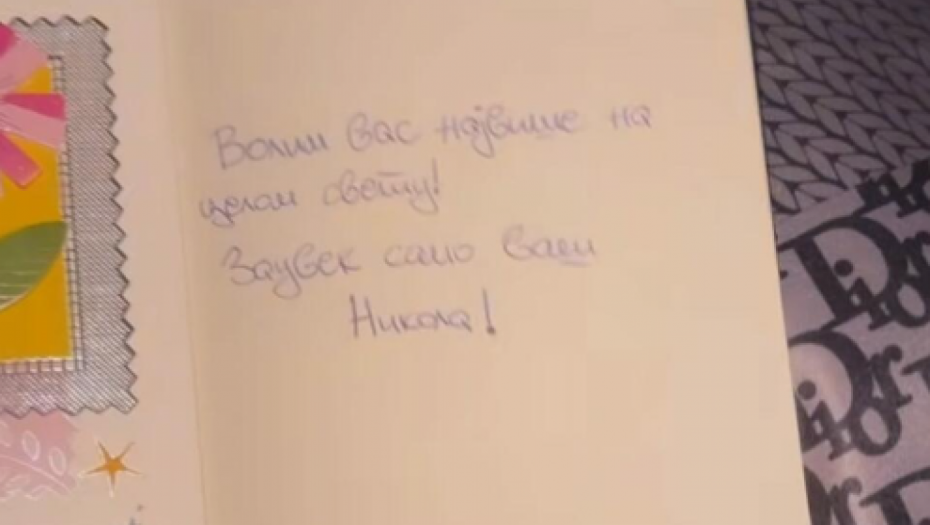 Волим вас највише на
целом свету!
Заувек само ваш
Никола!
Dior
Dior